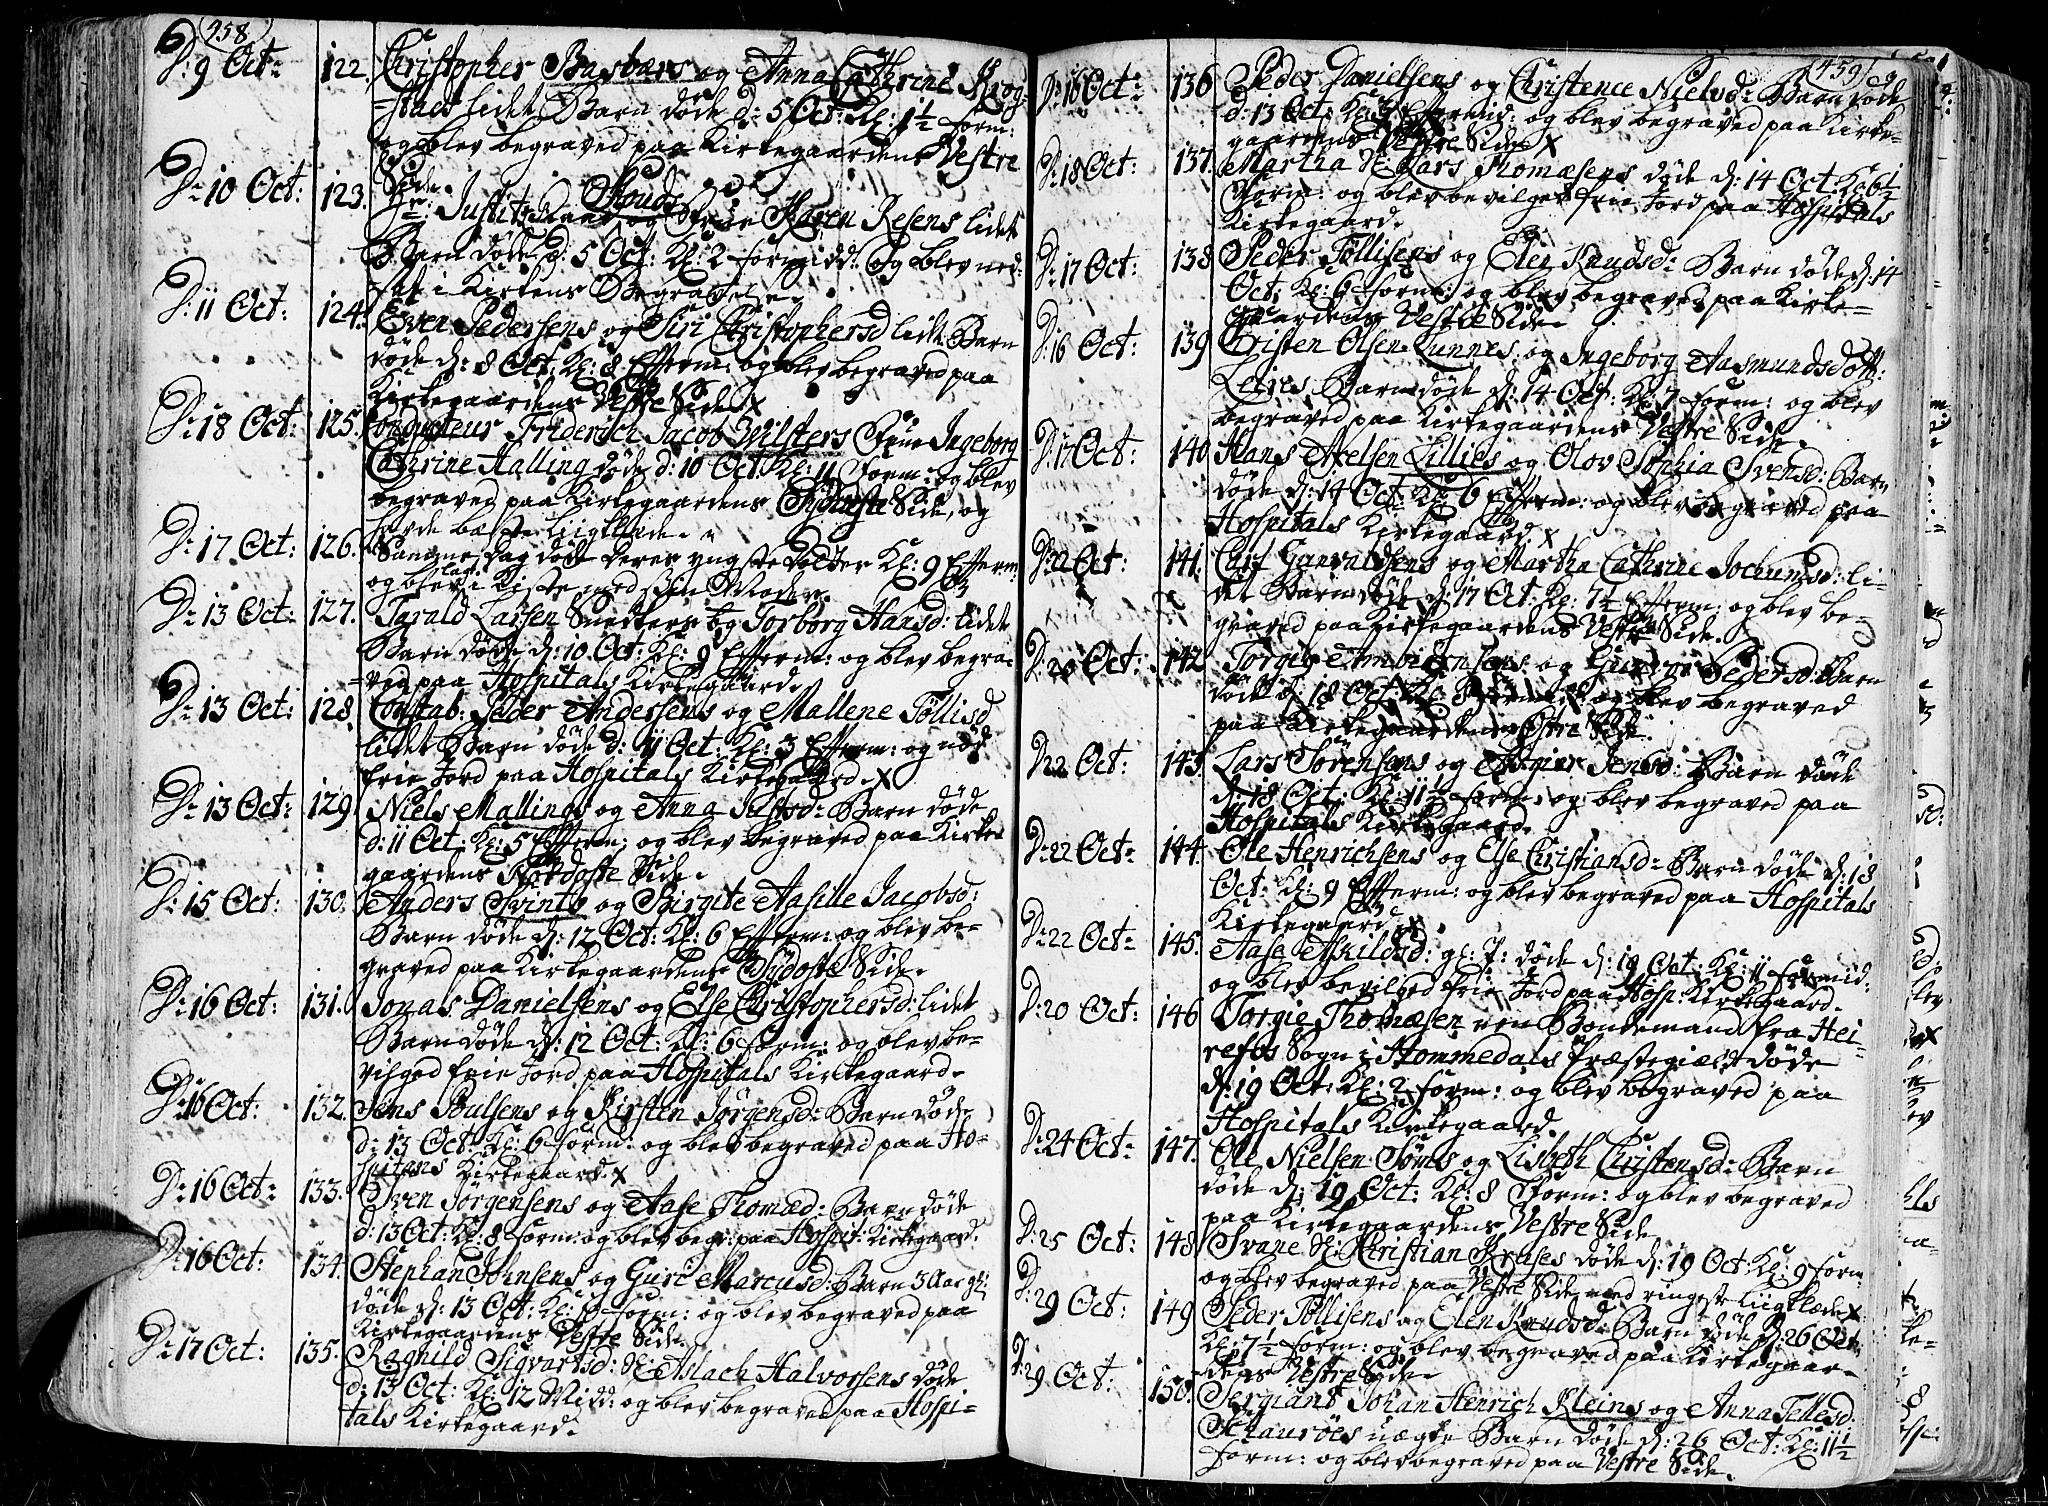 458
D: 9 Oct: 122. Christopher Basbærs og Anna Cathrine Krog-
stads lidet Barn døde d: 5 Oct: Kl: 1½ form:
og blev begraved paa Kirkegaardens Vestre
Side.
D: 10 Oct: 123. Hr: Justitz Raad Stouds og Frue Karen Resens lidet
Barn døde d: 5 Oct: Kl: 2 formidd: og blev ned-
sat i Kirkens Begravelse.
D: 11 Oct: 124. Even Pedersens og Siri Christophersd lidt Barn
døde d: 8 Oct: Kl: 8 Efterm: og blev begraved paa
Kirkegaardens Vestre Side X
D: 18 Oct: 125. Conducteur Friderich Jacob Wilsters Frue Ingeborg
Cathrine Halling døde d: 10 Oct: Kl: 11 form: og blev
begraved paa Kirkegaardens Side, og
havde bæste Liigklæde.
D: 17 Oct: 126. Samme Dag døde deres yngste Dotter Kl: 9 Efterm:
og blev lagt i Kiste med sin Moder.
D: 13 Oct: 127. Tarald Larsen Snedkers og Torborg Hansd: lidet
Barn døde d: 10 Oct: Kl: 9 Efterm: og blev begra-
ved paa Hospitals Kirkegaard.
D: 13 Oct: 128. Constab: Peder Andersens og Mallene Tollisd
lidet Barn døde d: 11 Oct: Kl: 3 Efterm: og nød
frie Jord paa Hospitals Kirkegaard. X
D: 13 Oct: 129. Niels Mallings og Anna Barn døde
d: 11 Oct: Kl: 5 Efterm: og blev begraved paa Kirke-
gaardens Nordoste Side.
D: 15 Oct: 130. Anders Svinto og Birgite Aasille Jacobsd:
Barn døde d: 12 Oct: Kl: 6 Efterm: og blev be-
graved paa Kirkegaardens Sydoste Side.
D: 16 Oct: 131. Jonas Danielsens og Else Christophersd: lidet
Barn døde d: 12 Oct: Kl: 6 form: og blev be-
vilged frie Jord paa Hospitals Kirkegaard.
D: 16 Oct: 132. Jens Poulsens og Kirsten Jørgensd: Barn døde
d: 13 Oct: Kl: 6 form: og blev begraved paa Ho-
spitals Kirkegaard. X
D: 16 Oct: 133. Sven Jørgensens og Aase Thomæd: Barn døde
d: 13 Oct: Kl: 8 form: og blev begr: paa Hospit: Kirkegaard.
D: 16 Oct: 134. Stephan Johnsens og Guri Marcusd: Barn 3 Aar gl:
døde d: 13 Oct: Kl: form: og blev begraved paa
Kirkegaardens Vestre Side.
D: 17 Oct: 135. Ragnild Sigvartsd: Aslach Halvorsens døde
d: 13 Oct: Kl: 12 Midd: og blev begraved paa Hospi-
tals Kirkegaard.
459
D: 16 Oct: 136. Peder Danielsens og Christence Nielsd: Barn døde
d: 13 Oct: Kl: 3 Eftermid: og blev begraved paa Kirke-
gaardens Vestre Side X
D: 18 Oct: 137. Martha Lars Thomæsens døde d: 14 Oct: Kl: 6½
Form: og blev bevilget frie Jord paa Hospitals
Kirkegaard.
D: 17 Oct: 138. Peder Tollisens og Elen Knudsd: Barn døde d: 14
Oct: Kl: 6 form: og blev begraved paa Kirke-
gaardens Vestre Side.
D: 16 Oct: 139. Cristen Olsen Lunnes og Ingeborg Aasmundsdott:
Leires Barn døde d: 14 Oct: Kl: 7 form: og blev
begraved paa Kirkegaardens Vestre Side.
D: 17 Oct: 140. Hans Axelsen Lillies og Olov Sophia Svensd: Barn
døde d: 14 Oct: Kl: 6 Efterm: og blev begraved paa
Hospitals Kirkegaard. X
D: 22 Oct: 141. Carl Ganvaldsens og Martha Cathrine Jochumsd: li-
det Barn døde d: 17 Oct: Kl: 7½ Efterm: og blev be-
graved paa Kirkegaardens Vestre Side.
D: 20 Oct: 142. Torgie og Pedersd: Barn
døde d: 18 Oct: Kl: og blev begraved
paa Kirkegaardens Side.
D: 22 Oct: 143. Lars Sørensens og Jensd: Barn døde
d: 18 Oct: Kl: 11½ form: og blev begraved paa
Hospitals Kirkegaard.
D: 22 Oct: 144. Ole Henrichsens og Else Christiansd: Barn døde d: 18
Oct: Kl: 9 Efterm: og blev begraved paa Hospitals
Kirkegaard. X
D: 22 Oct: 145. Aase Askildsd: gl: 7: døde d: 19 Oct: Kl: 11 formid:
og blev bevilged frie Jord paa Hosp: Kirkegaard.
D: 20 Oct: 146. Torgie Thomæsen een Bondemand fra Hei-
refos Sogn i Hommedals Præstegield døde
d: 19 Oct: Kl: 2 form: og blev begraved paa
Hospitals Kirkegaard.
D: 24 Oct: 147. Ole Nielsen Søms og Lisbeth Christensd: Barn
døde d: 19 Oct: Kl: 8 Form: og blev begraved
paa Kirkegaardens Vestre Side.
D: 25 Oct: 148. Svane Christian Kruses døde d: 19 Oct: Kl: 9 form:
og blev begraved paa Vestre Side med ringeste Liigklæde X
D: 29 Oct: 149. Peder Tollisens og Elen Knudsd: Barn døde d: 26 Oct:
Kl: 7½ form: og blev begraved paa Kirkegaar-
dens Vestre Side.
D: 29 Oct: 150. Sergiant Johan Henrich Kleins og Anna Tellesd:
uægte Barn døde d: 26 Oct: Kl: 11½
form: og blev begraved paa Vestre Side.